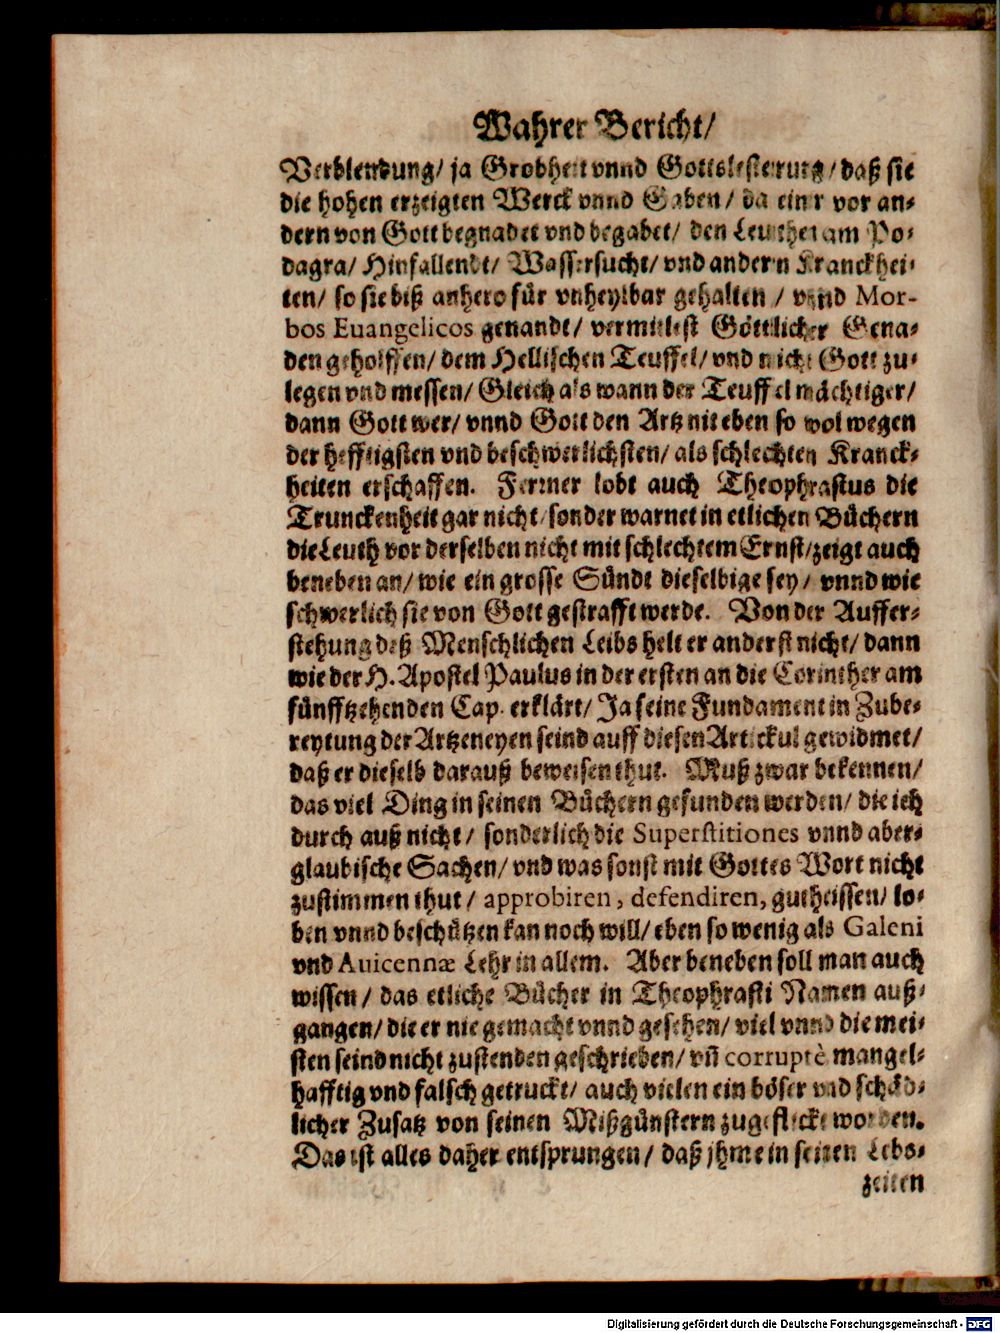 Wahrer Bericht/
Verblendung/ ja Grobheit vnnd Gottslesterung/ daß sie
die hohen erzeigten Werck vnnd Gaben/ da einer vor an-
dern von Gott begnadet vnd begabet/ den Leuthen am Po-
dagra/ Hinfallendt/ Wassersucht/ vnd andern Kranckhei-
ten/ so sie biß anhero für vnheylbar gehalten / vnnd Mor-
bos Euangelicos genandt/ vermittelst Göttlicher Gena-
den geholffen/ dem Hellischen Teuffel/ vnd nicht Gott zu-
legen vnd messen/ Gleich als wann der Teuffel mächtiger/
dann Gott wer/ vnnd Gott den Artz nit eben so wol wegen
der hefftigsten vnd beschwerlichsten/ als schlechten Kranck-
heiten erschaffen. Ferrner lobt auch Theophrastus die
Trunckenheit gar nicht/ sonder warnet in etlichen Büchern
die Leuth vor derselben nicht mit schlechtem Ernst/ zeigt auch
beneben an/ wie ein grosse Sündt dieselbige sey/ vnnd wie
schwerlich sie von Gott gestrafft werde. Von der Auffer-
stehung deß Menschlichen Leibs helt er anderst nicht/ dann
wie der H. Apostel Paulus in der ersten an die Corinther am
fünfftzehenden Cap. erklärt/ Ja seine Fundament in Zube-
reytung der Artzeneyen seind auff diesen Artickul gewidmet/
daß er dieselb darauß beweisen thut. Muß zwar bekennen/
das viel Ding in seinen Büchern gefunden werden/ die ich
durch auß nicht/ sonderlich die Superstitiones vnnd aber-
glaubische Sachen/ vnd was sonst mit Gottes Wort nicht
zustimmen thut/ approbiren, defendiren, gutheissen/ lo-
ben vnnd beschützen kan noch will/ eben so wenig als Galeni
vnd Auicennæ Lehr in allem. Aber beneben soll man auch
wissen/ das etliche Bücher in Theophrasti Namen auß-
gangen/ die er nie gemacht vnnd gesehen/ viel vnnd die mei-
sten seind nicht zustenden geschrieben/ vñ corruptè mangel-
hafftig vnd falsch getruckt/ auch vielen ein böser vnd schäd-
licher Zusatz von seinen Mißgünstern zugeflickt worden.
Das ist alles daher entsprungen/ daß jhme in seinen Lebs-
zeiten
Digitalisierung gefördert durch die Deutsche Forschungsgemeinschaft - DFG